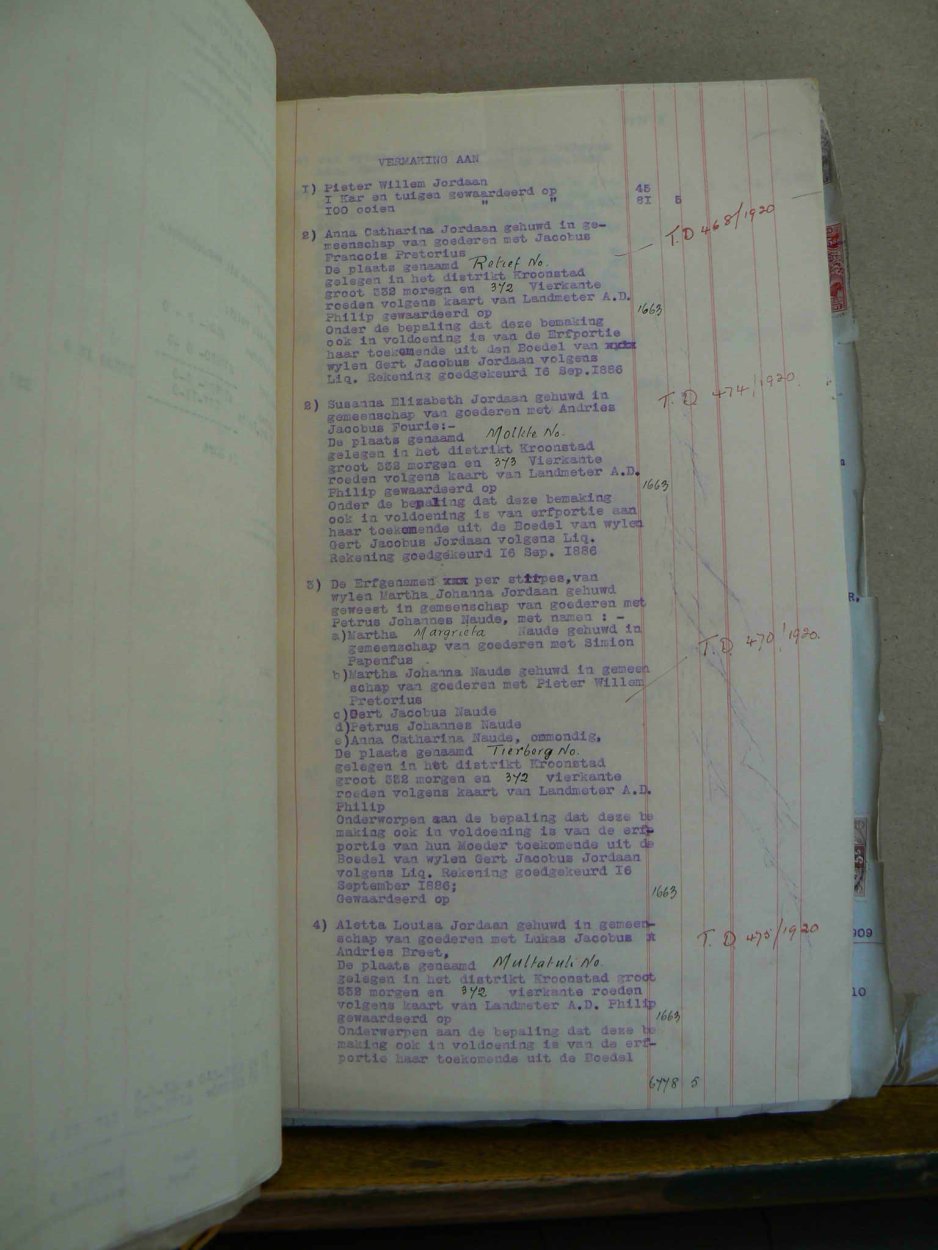 VERMAKING AAN
1) Pieter Willem Jordaan
I Kar en tuigen gewaardeerd op 45
100 ooien " " 81 5
2) Anna Catharina Jordaan gehuwd in ge-
meenschap van goederen met Jacobus
Francois Pretorius T.D 468/1920
De plaats genaamd Retief No.
gelegen in het distrikt Kroonstad
groot 332 moregn en 372 Vierkante
roeden volgens kaart van Landmeter A.D.
Philip gewaardeerd op 1663
Onder de bepaling dat deze bemaking
ook in voldoening is van de Erfportie
haar toekomende uit den Boedel van xxxx
wylen Gert Jacobus Jordaan volgens
Liq. Rekening goedgekeurd 16 Sep.1886
2) Susanna Elizabeth Jordaan gehuwd in T.D. 474/1920.
gemeenschap van goederen met Andries
Jacobus Fourie:-
De plaats genaamd Moltke No.
gelegen in het distrikt Kroonstad
groot 332 morgen en 373 Vierkante
roeden volgens kaart van Landmeter A.D.
Philip gewaardeerd op 1663
Onder de bepaling dat deze bemaking
ook in voldoening is van erfportie aan
haar toekomende uit de Boedel van wylen
Gert Jacobus Jordaan volgens Liq.
Rekening goedgekeurd 16 Sep. 1886
3) De Erfgenamen xxx per stirpes,van
wylen Martha Johanna Jordaan gehuwd
geweest in gemeenschap van goederen met
Petrus Johannes Naude, met namen : -
a)Martha Margrieta Naude gehuwd in T.D. 470/1920.
gemeenschap van goederen met Simion
Papenfus
b)Martha Johanna Naude gehuwd in gemeen
schap van goederen met Pieter Willem
Pretorius
c)Gert Jacobus Naude
d)Petrus Johannes Naude
e)Anna Catharina Naude, onmondig,
De plaats genaamd Tierberg No.
gelegen in het distrikt Kroonstad
groot 332 morgen en 372 vierkante
roeden volgens kaart van Landmeter A.D.
Philip
Onderworpen aan de bepaling dat deze be
making ook in voldoening is van de erf-
portie van hun Moeder toekomende uit de
Boedel van wylen Gert Jacobus Jordaan
volgens Liq. Rekening goedgekeurd 16
September 1886;
Gewaardeerd op 1663
4) Aletta Louisa Jordaan gehuwd in gemeen-
schap van goederen met Lukas Jacobus x T.D. 475/1920
Andries Breet,
De plaats genaamd Multatuli No.
gelegen in het distrikt Kroonstad groot
332 morgen en 372 vierkante roeden
volgens kaart van Landmeter A.D. Philip
gewaardeerd op 1663
Onderworpen aan de bepaling dat deze be
making ook in voldoening is van de erf-
portie haar toekomende uit de Boedel
6778 5
R,
909
10